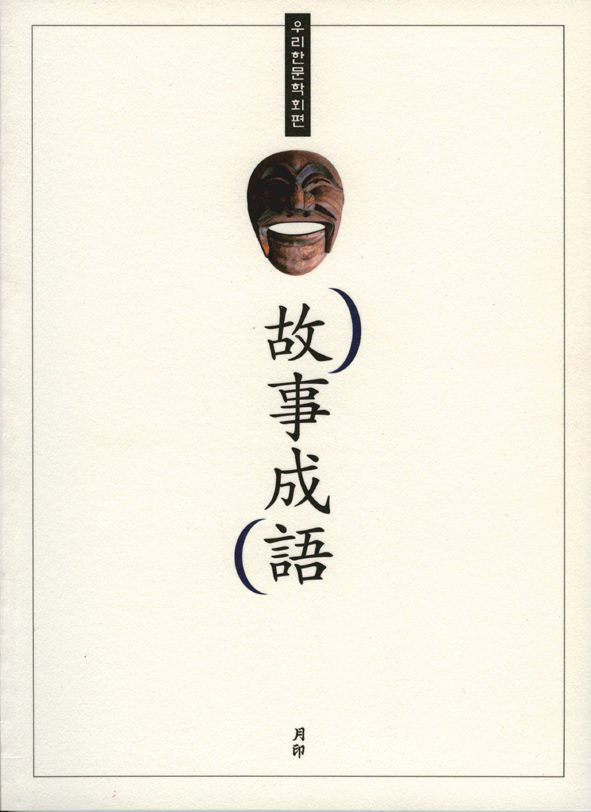 우리한문학회편
故事成語
月印